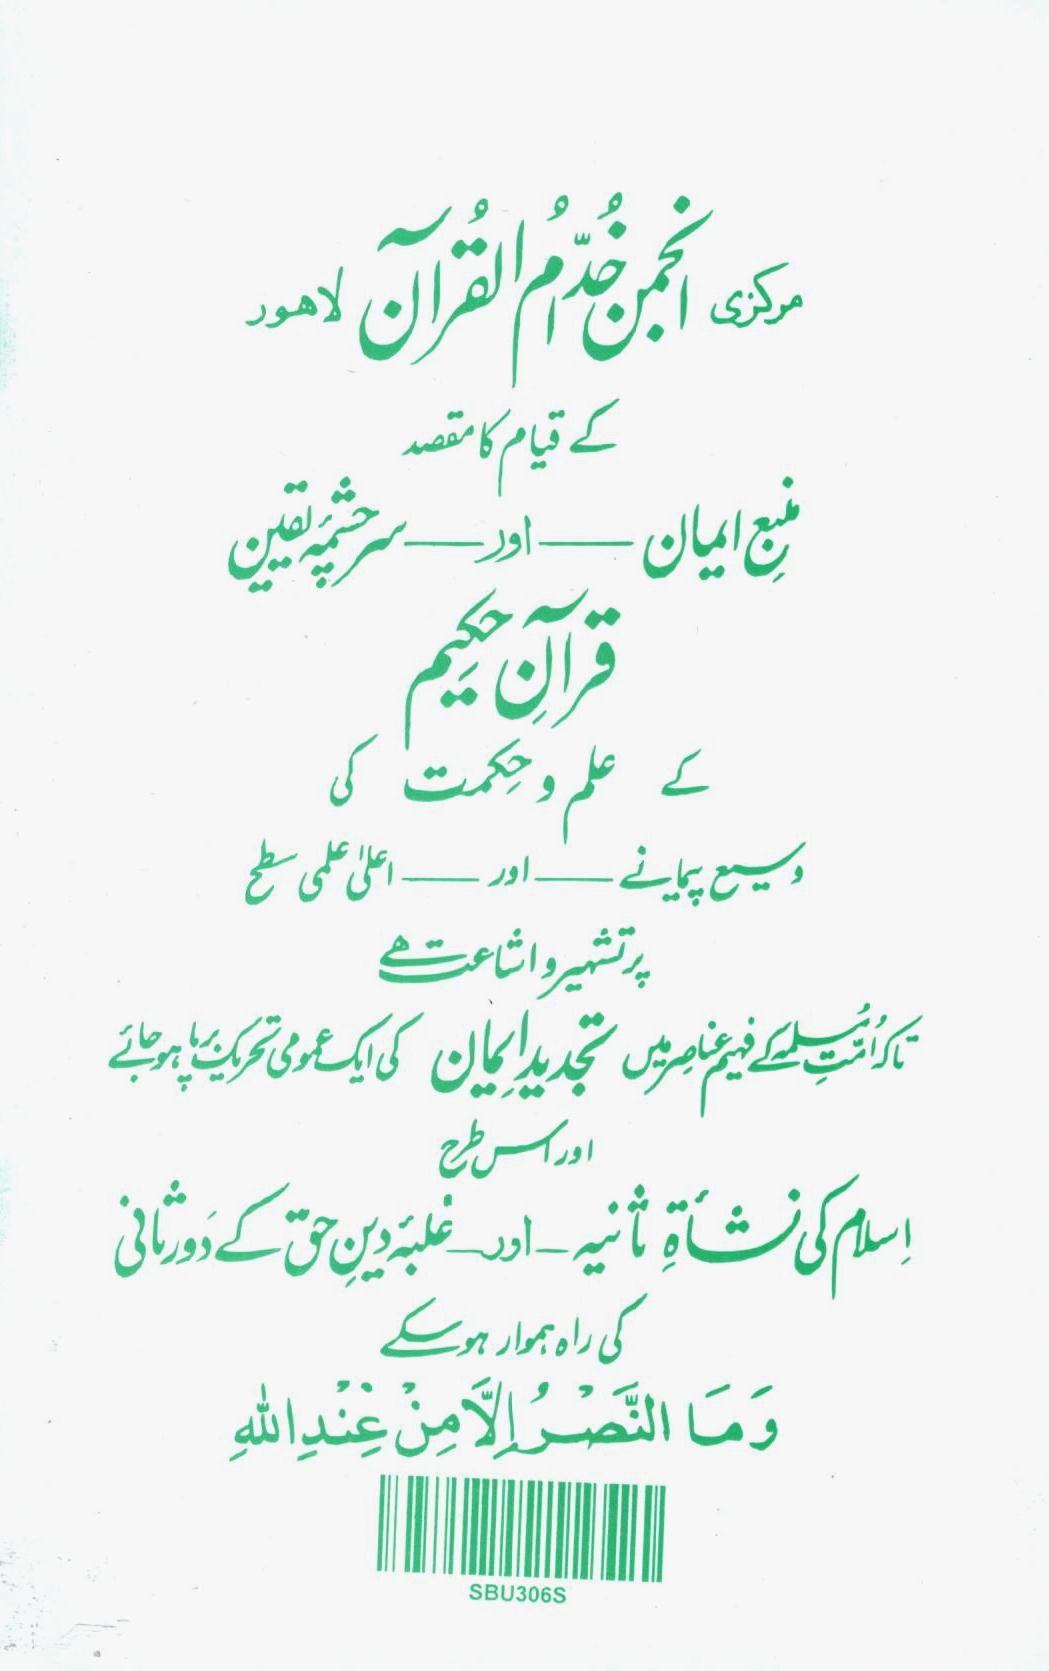 مرکزی انجمن خُدّامُ القُرآن لاہور
کے قیام کا مقصد
منبعِ ایمان ــــ اور ــــ سرچشمۂ یقین
قرآنِ حکیم
کے علم و حکمت کی
وسیع پیمانے ــــ اور ــــ اعلیٰ علمی سطح
پر تشہیر و اشاعت ہے
تاکہ اُمّتِ مُسلمہ کے فہیم عناصر میں تجدیدِ ایمان کی ایک عمومی تحریک برپا ہو جائے
اور اس طرح
اِسلام کی نشأۃِ ثانیہ ــ اور ــ غلبۂ دینِ حق کے دَورِ ثانی
کی راہ ہموار ہو سکے
وَمَا النَّصْرُ إِلَّا مِنْ عِنْدِ اللهِ
SBU306S